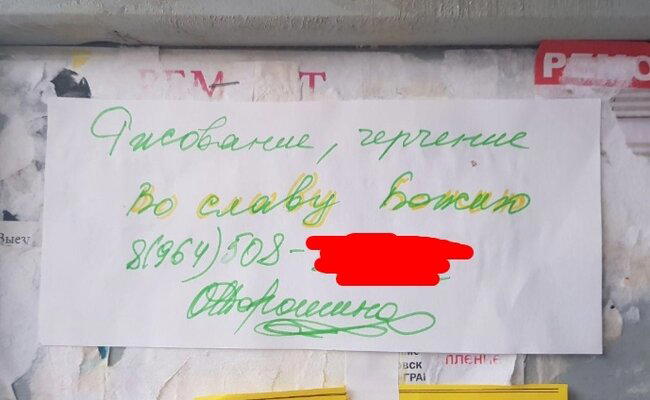 РЕМ Т
РЕМО
Рисование, черчение
Во славу Божию
Выез
8(964)508-
ОТорошина
ПЛЕНИЕ
ОВСК
ГРАН